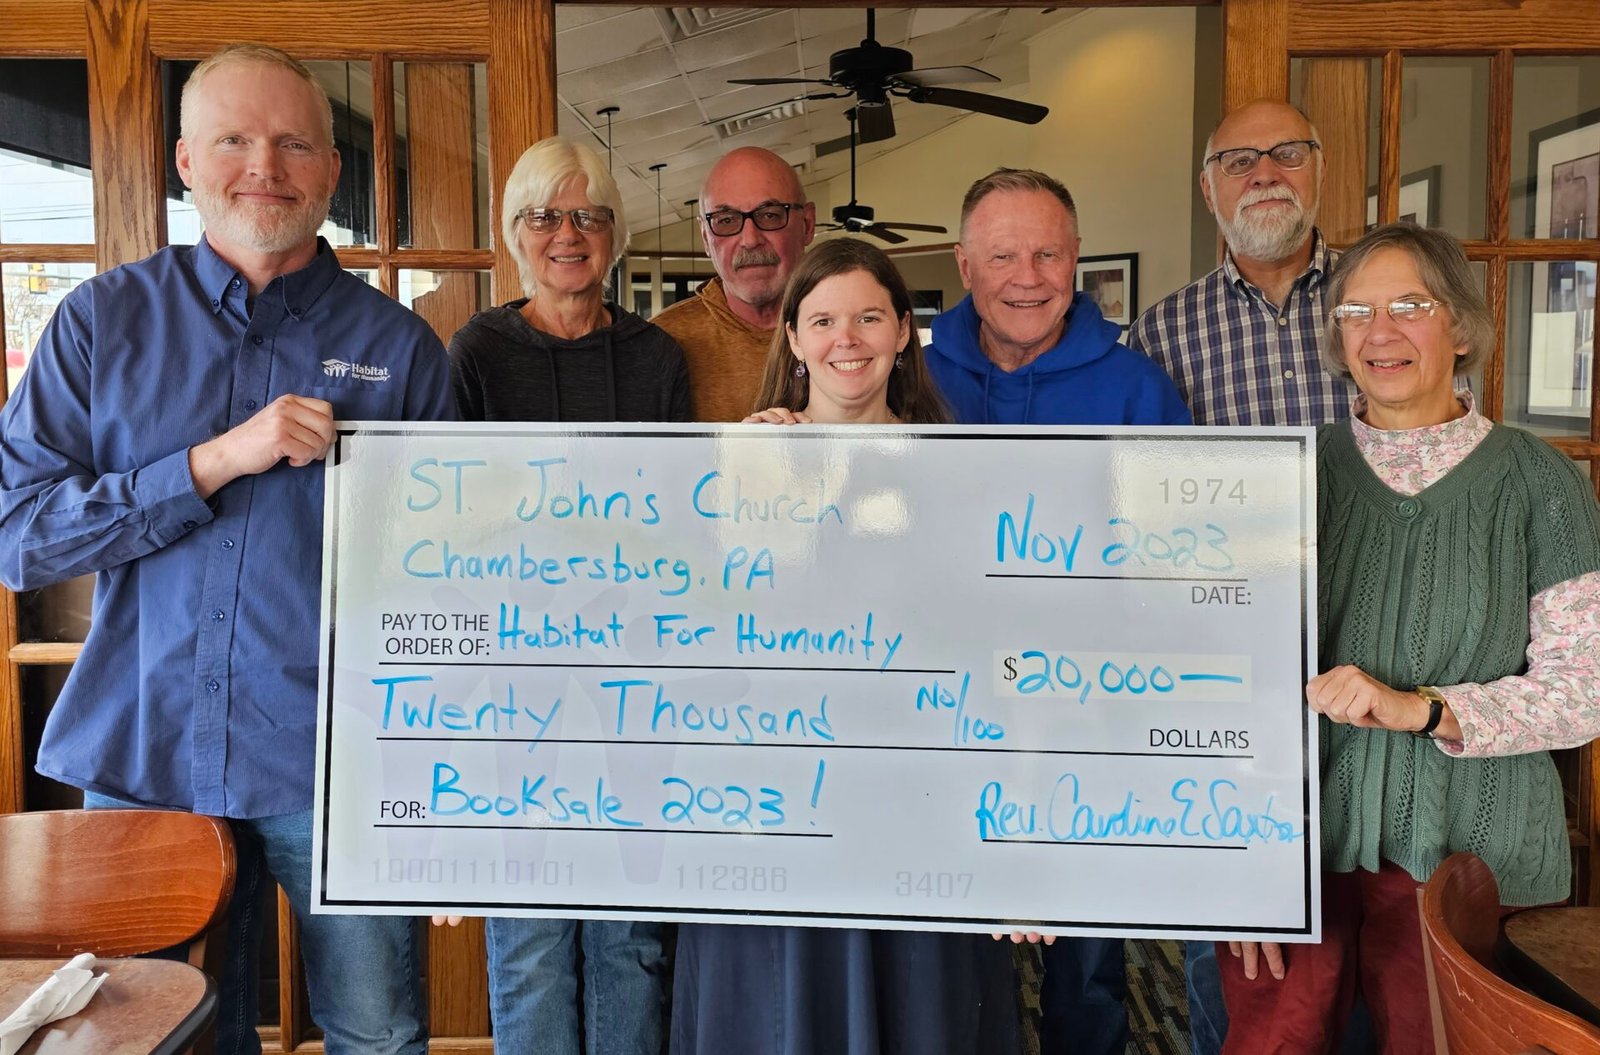 Habitat
for Humanity
ST. John's Church
1974
Chambersburg, PA
Nov 2023
DATE:
PAY TO THE
ORDER OF: Habitat For Humanity
$20,000—
Twenty Thousand No/100
DOLLARS
FOR: Booksale 2023!
Rev. Caroline E Saxton
10001110101 112386 3407